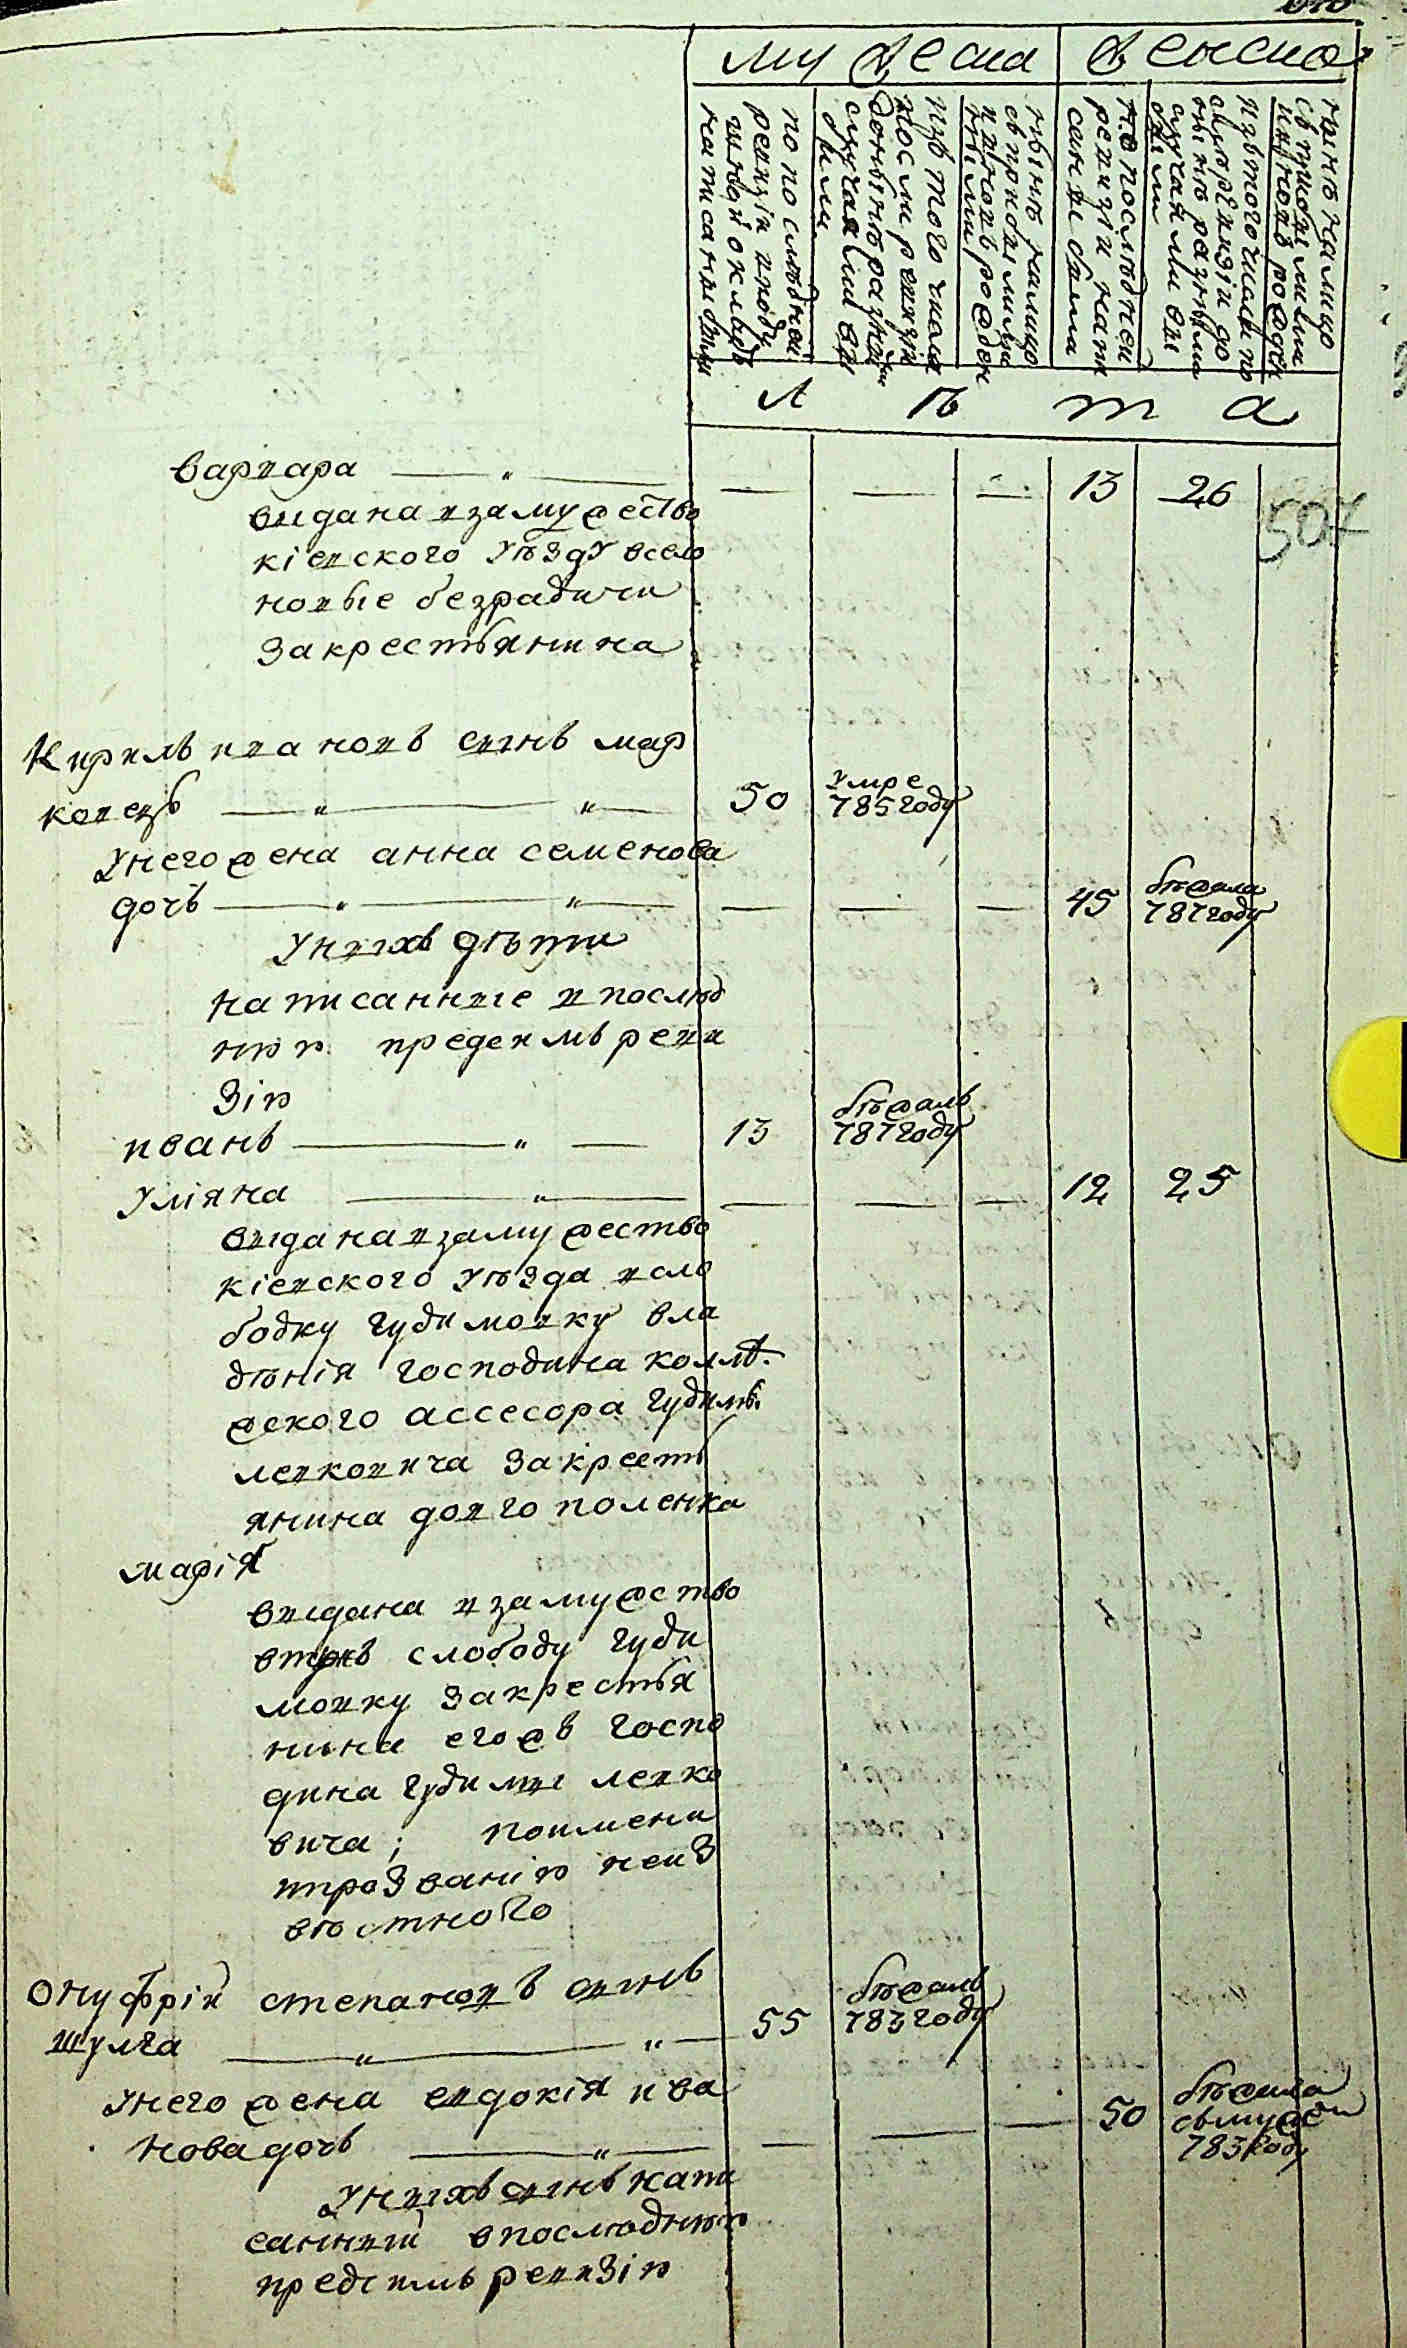 мужеска женска
по последней
ревизіи и поду
шной окладъ
написаны были
изъ того числа
после ревизіи
до нынѣ разными
случаями вы
были
нынѣ налицо
съ прибылыми
и вновь рожден
ными
по последней
ревизіи напи
санные были
изъ того числа по
сле ревизіи до
нынѣ разными
случаями вы
были
нынѣ налицо
съ прибылыми
и вновь рожден
лѣта
варвара — " — — — — 13 26
507
выдана взамужество
кіевского уѣзду всело
новые безрадичи
закрестьянина
Кирилъ ивановъ сынъ мар
ковецъ — " — " — 50 умре 785 году
унего жена анна семенова
дочъ — " — " — — — — 45 бѣжала 787 году
унихъ дѣти
написанные впослѣд
нюю предсимъ реви
зію
иванъ — " — 13 бѣжалъ 787 году
уліяна — " — — — — 12 25
выдана взамужество
кіевского уѣзда всло
бодку гудимовку вла
дѣнія господина коллѣ
жского ассесора гудимы
левковича закресть
янина долгополенка
марія
выдана взамужство
втужъ слободу гуди
мовку закрестья
нина егожъ госпо
дина гудимы левко
вича; поимени
ипрозванію неиз
вѣстного
онуфрій степановъ сынъ
шулга — " — " — 55 бѣжалъ 783 году
унего жена евдокія ива
нова дочъ — " — — — — 50 бѣжала смужем 783 году
унихъ сынъ напи
санный впослѣднюю
предсимъ ревизію